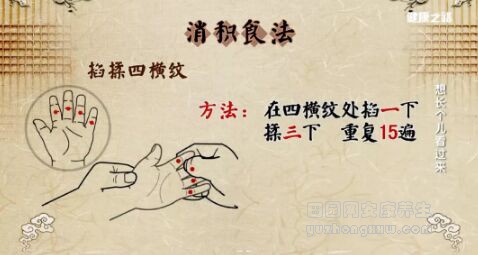 消积食法
健康之路
掐揉四横纹
方法：在四横纹处掐一下
揉三下 重复15遍
想长个儿看过来
yuzhongxww.com